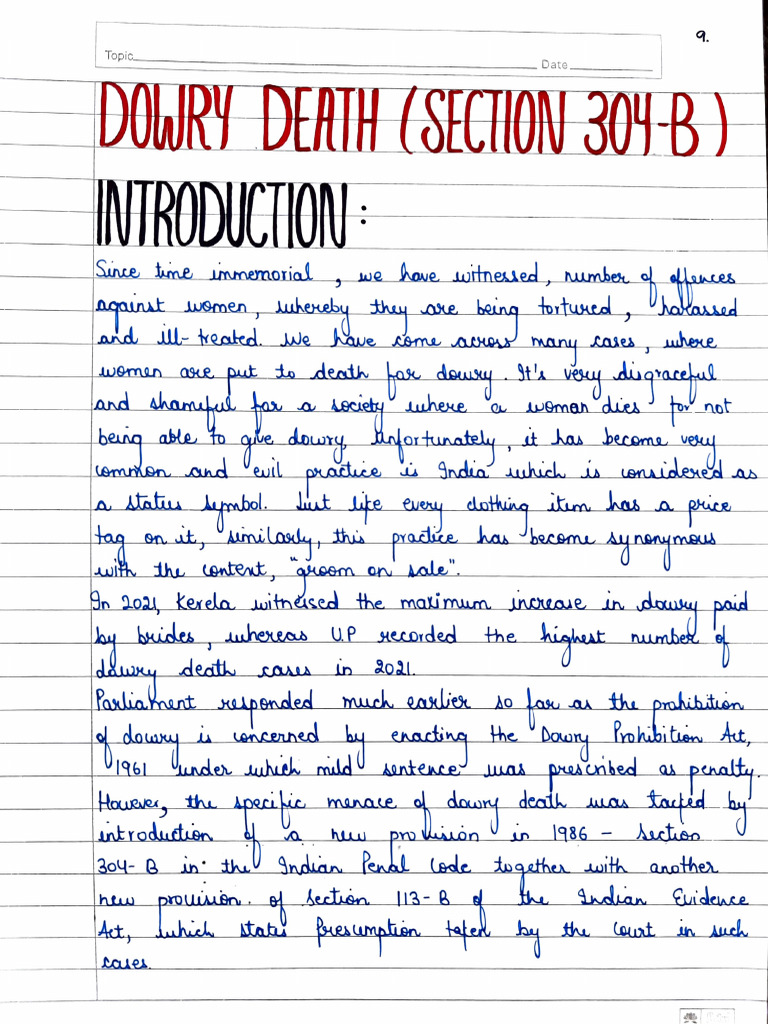 9.
Topic Date
DOWRY DEATH (SECTION 304-B)
INTRODUCTION:
Since time immemorial, we have witnessed, number of offences
against women, whereby they are being tortured, harassed
and ill-treated. We have come across many cases, where
women are put to death for dowry. It's very disgraceful
and shameful for a society where a woman dies for not
being able to give dowry. Unfortunately, it has become very
common and evil practice is India which is considered as
a status symbol. Just like every clothing item has a price
tag on it, similarly, this practice has become synonymous
with the content, "groom on sale".
In 2021, Kerela witnessed the maximum increase in dowry paid
by brides, whereas U.P recorded the highest number of
dowry death cases in 2021.
Parliament responded much earlier so far as the prohibition
of dowry is concerned by enacting the Dowry Prohibition Act,
1961 under which mild sentence was prescribed as penalty.
However, the specific menace of dowry death was tackled by
introduction of a new provision in 1986 - Section
304-B in the Indian Penal Code together with another
new provision of Section 113-B of the Indian Evidence
Act, which states presumption taken by the court in such
cases.